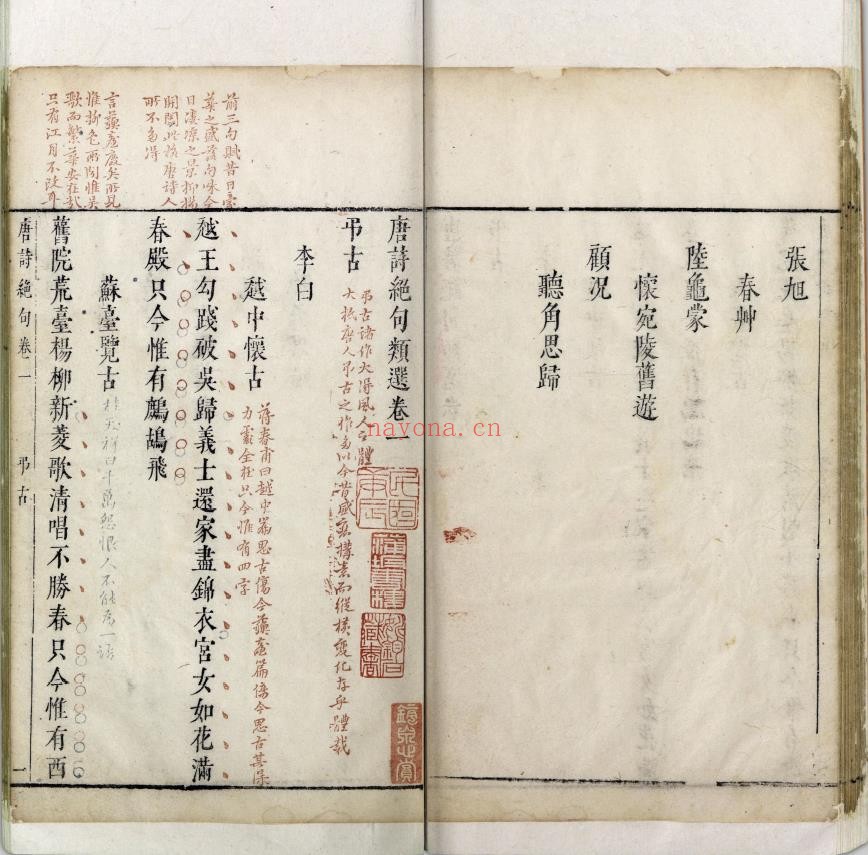 張旭
春艸
陸龜蒙
懷宛陵舊遊
顧況
聽角思歸
唐詩絕句類選卷一
弔古
弔古諸作大得風人之體
大抵唐人弔古之作多以今昔盛衰構意而縱橫變化存乎體裁
李白
越中懷古
蔣春甫曰越中篇思古傷今蘇臺篇傷今思古其
力處全在只今惟有四字
越王勾踐破吳歸義士還家盡錦衣宮女如花滿
春殿只今惟有鷓鴣飛
蘇臺覽古
桂天祥曰千萬怨恨人不能為一語
舊院荒臺楊柳新菱歌清唱不勝春只今惟有西
唐詩絕句卷一
弔古
一
前三句賦昔日豪
華之盛落句咏今
日凄凉之景
開闔此格唐詩人
所不多得
言蘇臺廢矣所見
惟柳色所聞惟吳
歌而繁華安在哉
只有江月不改耳
nayona.cn